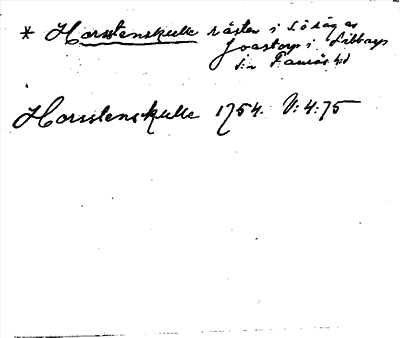 * Horstenskulle rösten i S ö räg av
Joastorp i Sibbarp
s:n Faurås hd
Horstenskulle 1754. V:4:75